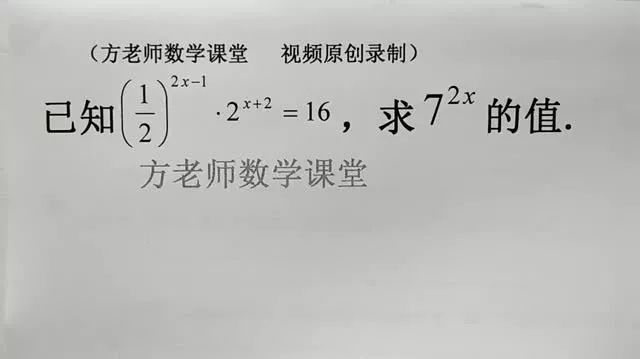 （方老师数学课堂 视频原创录制）
已知(1/2)^{2x-1}·2^{x+2}=16，求7^{2x}的值.
方老师数学课堂